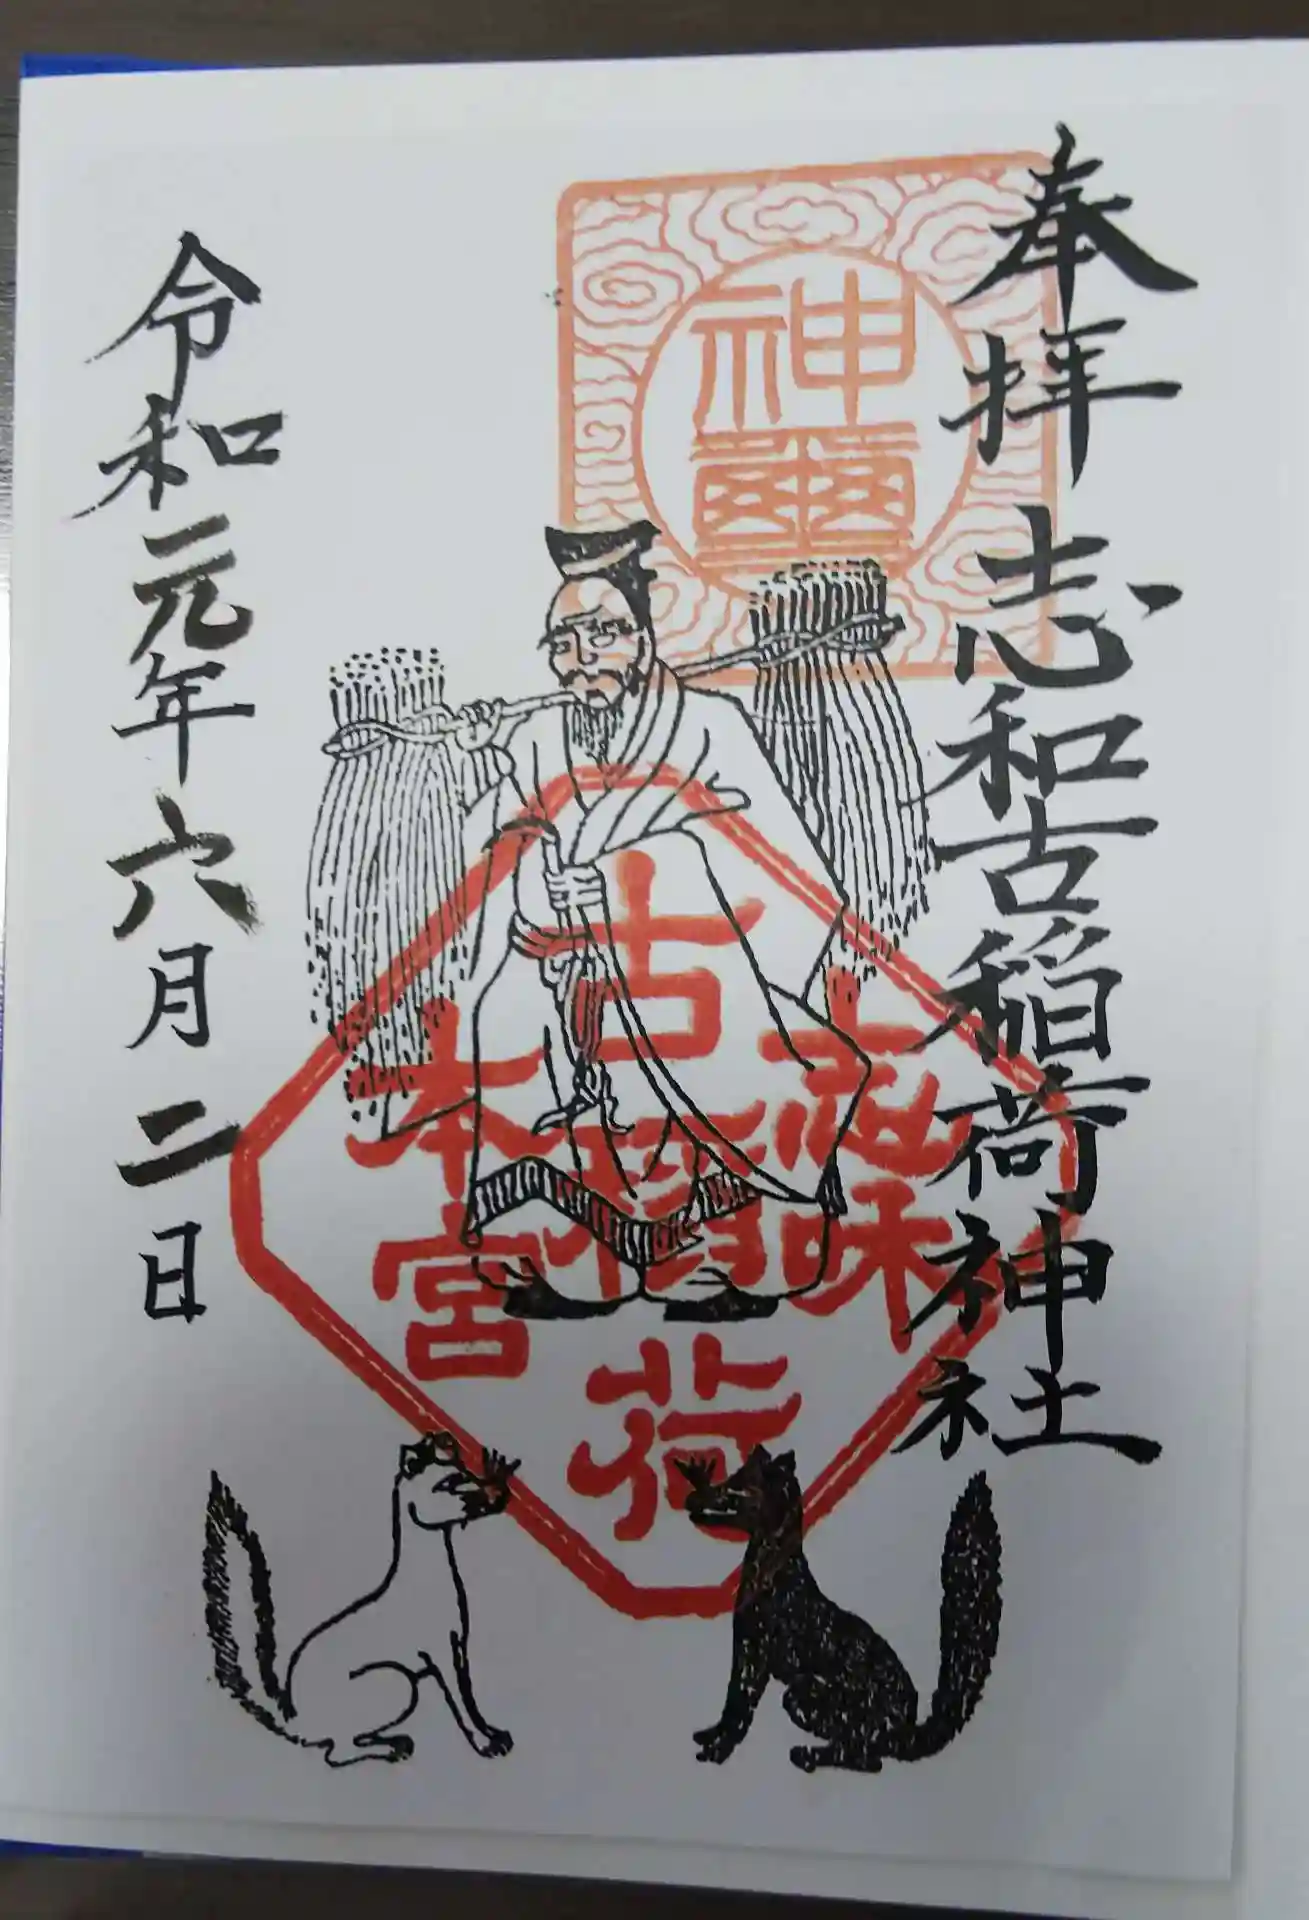 奉拝 志和古稲荷神社
神璽
志味
古稲荷
本宮
令和元年六月二日